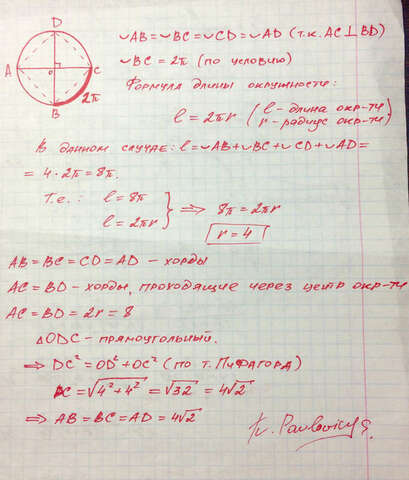 D
A
O
C
B
2π
◡AB=◡BC=◡CD=◡AD (т.к. AC⊥BD)
◡BC = 2π (по условию)
Формула длины окружности:
l = 2πr (l - длина окр-ти
r - радиус окр-ти)
В данном случае: l=◡AB+◡BC+◡CD+◡AD=
= 4·2π = 8π.
Т.е.: l = 8π
l = 2πr } ⇒ 8π = 2πr
r = 4
AB = BC = CD = AD - хорды
AC = BD - хорды, проходящие через центр окр-ти
AC = BD = 2r = 8
△ODC - прямоугольный.
⇒ DC² = OD² + OC² (по т. Пифагора)
DC = √4² + 4² = √32 = 4√2
⇒ AB = BC = AD = 4√2